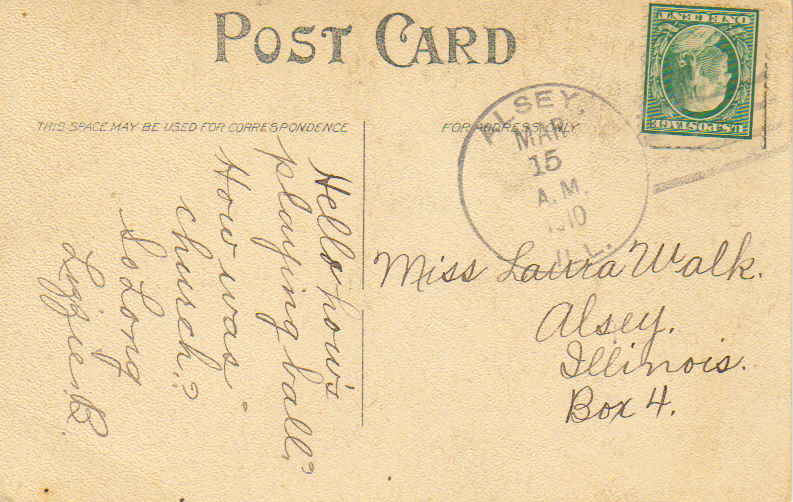 POST CARD
THIS SPACE MAY BE USED FOR CORRESPONDENCE
FOR ADDRESS ONLY
Hello how's
playing ball?
How was
church?
So Long
Lizzie B.
ALSEY,
MAR
15
A.M.
1910
ILL.
U.S. POSTAGE
ONE CENT
Miss Laura Walk.
Alsey,
Illinois.
Box 4.